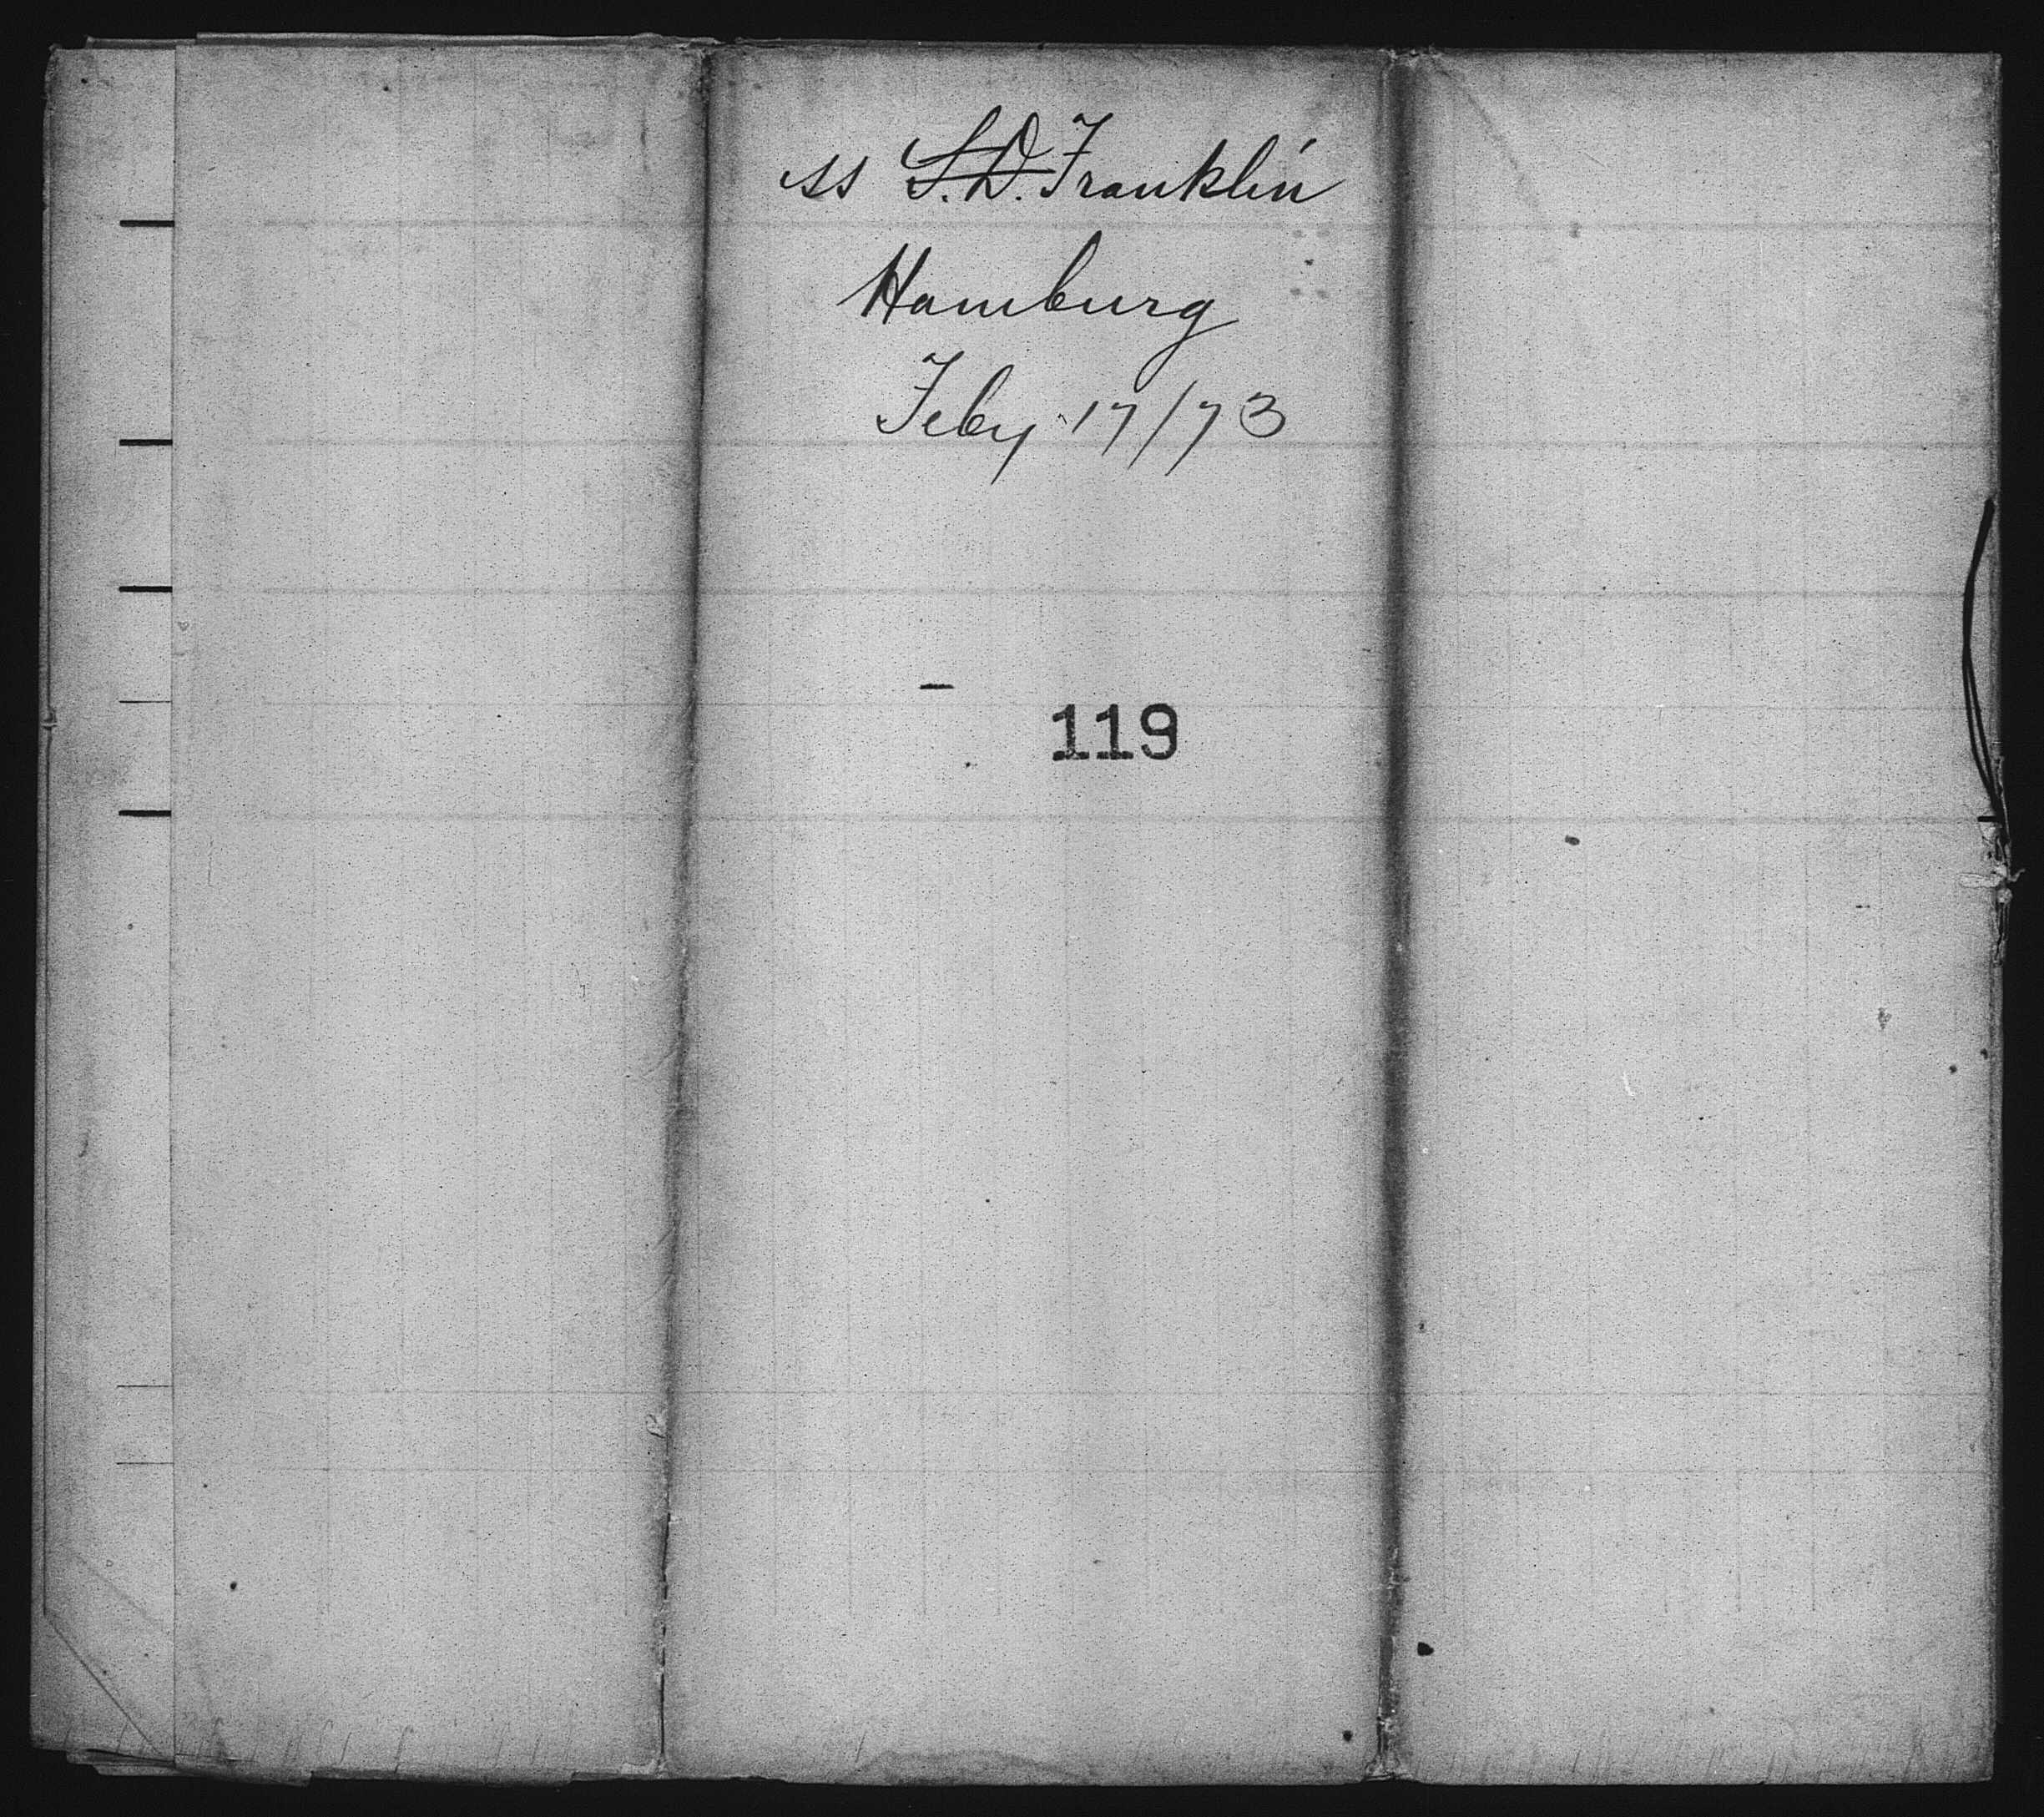 ss S.D. Franklin
Hamburg
Feby 17/73
119